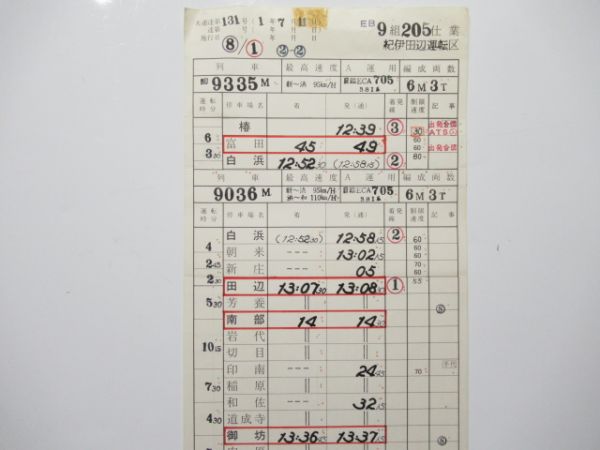 大運達第131号(1年7月11日)
達第 号( 年 月 日)
施行日 年 月 日
⑧/① ②-②
EB 9組205仕業
紀伊田辺運転区
列車 最高速度 A運用 編成両数
9335M 95km/H ECA705 581系 6M3T
運転時分 停車場名 着 発(通) 着発線 制限速度 記事
椿 12:39 ③ 30 出発合図
6 富田 45 49 60 出発合図
3 30 白浜 12:52 30 (12:58 15) ② 60
列車 最高速度 A運用 編成両数
9036M 95km/H ECA705 6M3T
110km/H 581系
運転時分 停車場名 着 発(通) 着発線 制限速度 記事
白浜 (12:52 30) 12:58 15 ② 60
4 朝来 --- 13:02 15 60
2 45 新庄 --- 05 70 60
2 30 田辺 13:07 30 13:08 30 ① 55
5 30 芳養 || || Ⓢ
南部 14 14
岩代 || ||
10 15 切目 || ||
印南 --- 24 45 70
7 30 稲原 || ||
和佐 --- 32 15
4 30 道成寺 || ||
御坊 13:36 45 13:37 15 Ⓢ